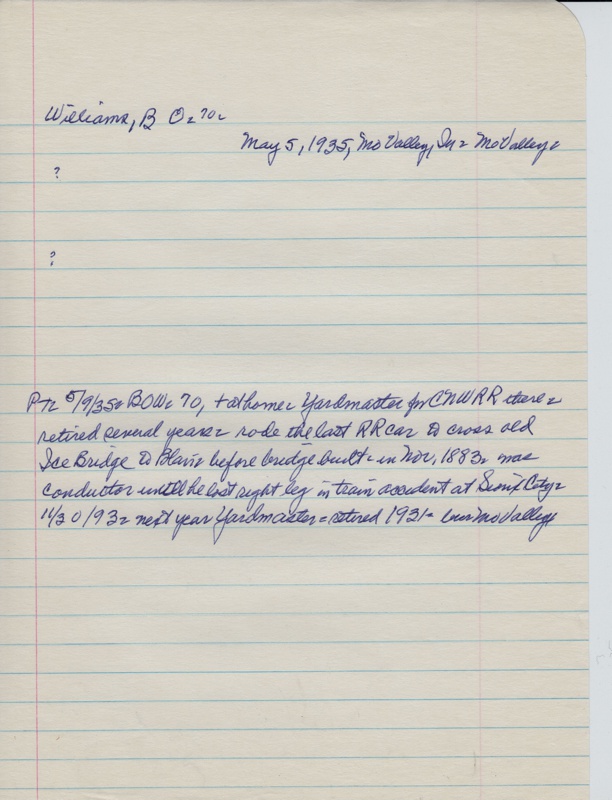 Williams, B O - 70 -
May 5, 1935, Mo Valley, Ia - Mo Valley -
?
?
PT - 5/9/35 - BOW - 70, + at home - Yardmaster for CNWRR there -
retired several years - rode the last RR car to cross old
Ice Bridge to Blair before bridge built - in Nov, 1883 - was
conductor until he lost right leg in train accident at Sioux City -
11/30/93 - next year Yardmaster - retired 1921 - bur Mo Valley